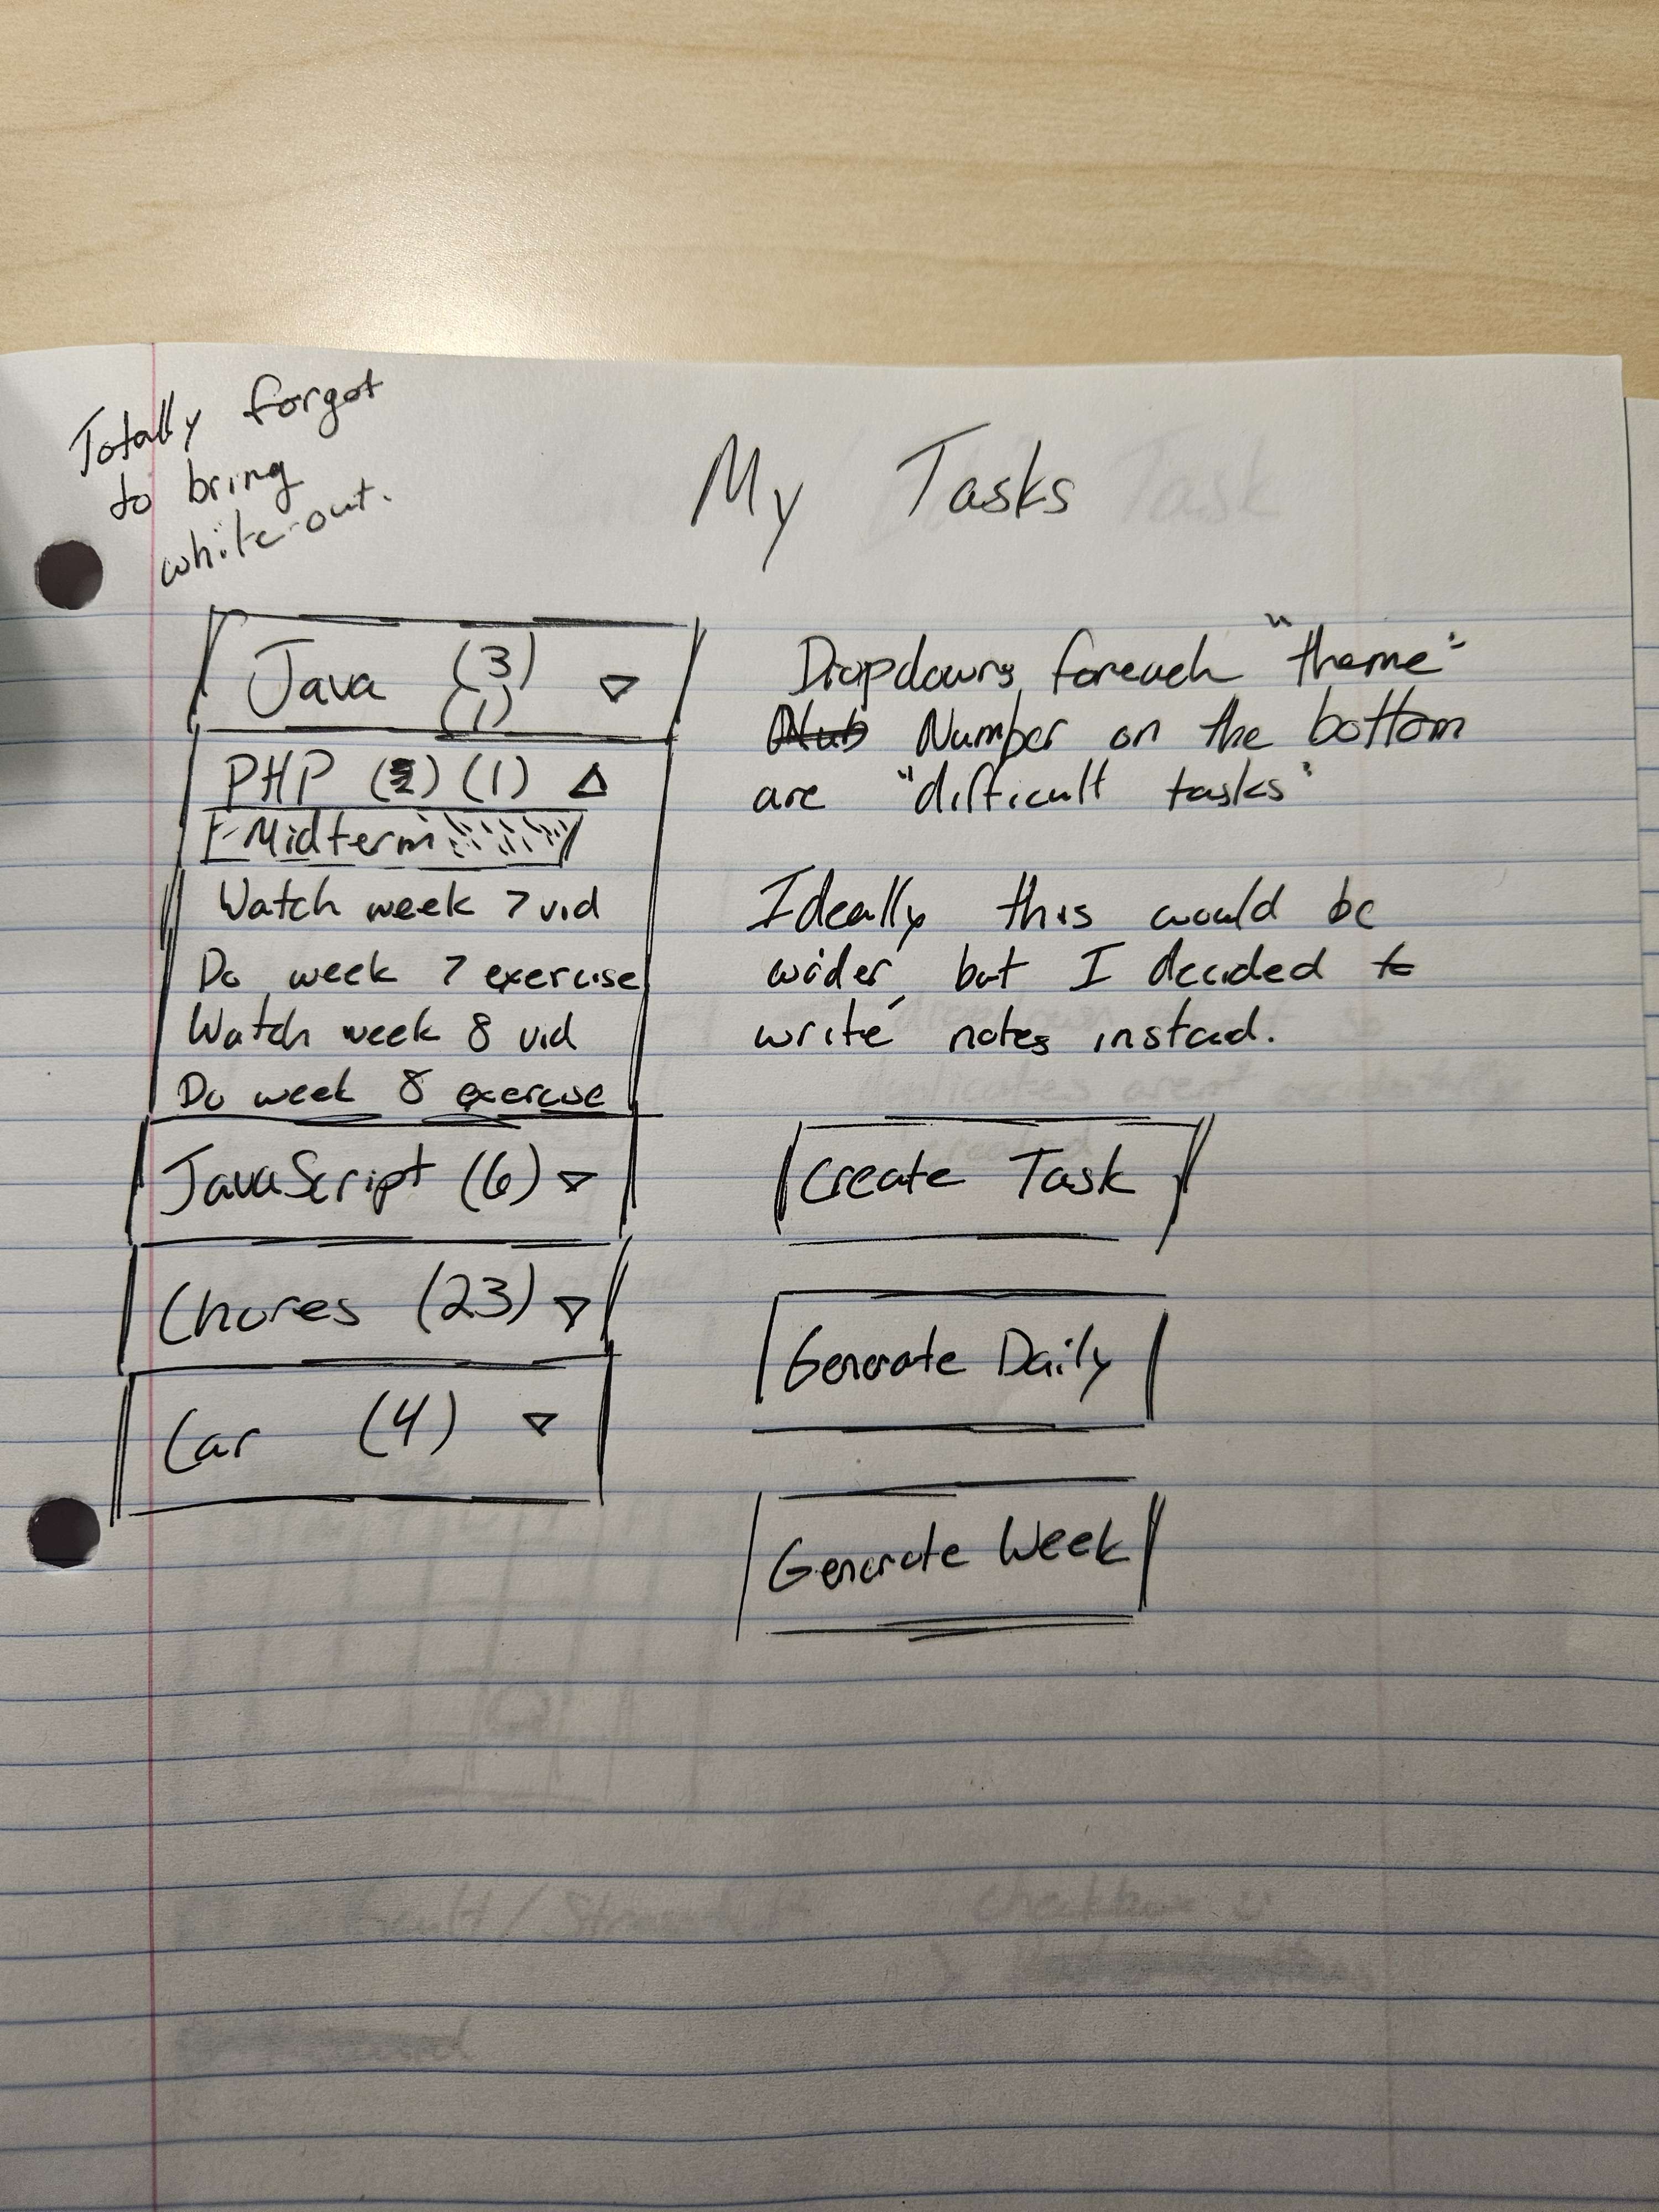 Totally forgot
to bring
white-out.
My Tasks
Java (3)
(1)
PHP ( ) (1)
Midterm
Watch week 7 vid
Do week 7 exercise
Watch week 8 vid
Do week 8 exercise
JavaScript (6)
Chores (23)
Car (4)
Dropdowns foreach "theme"
Number on the bottom
are "difficult tasks"
Ideally this would be
wider, but I decided to
write notes instead.
Create Task
Generate Daily
Generate Week